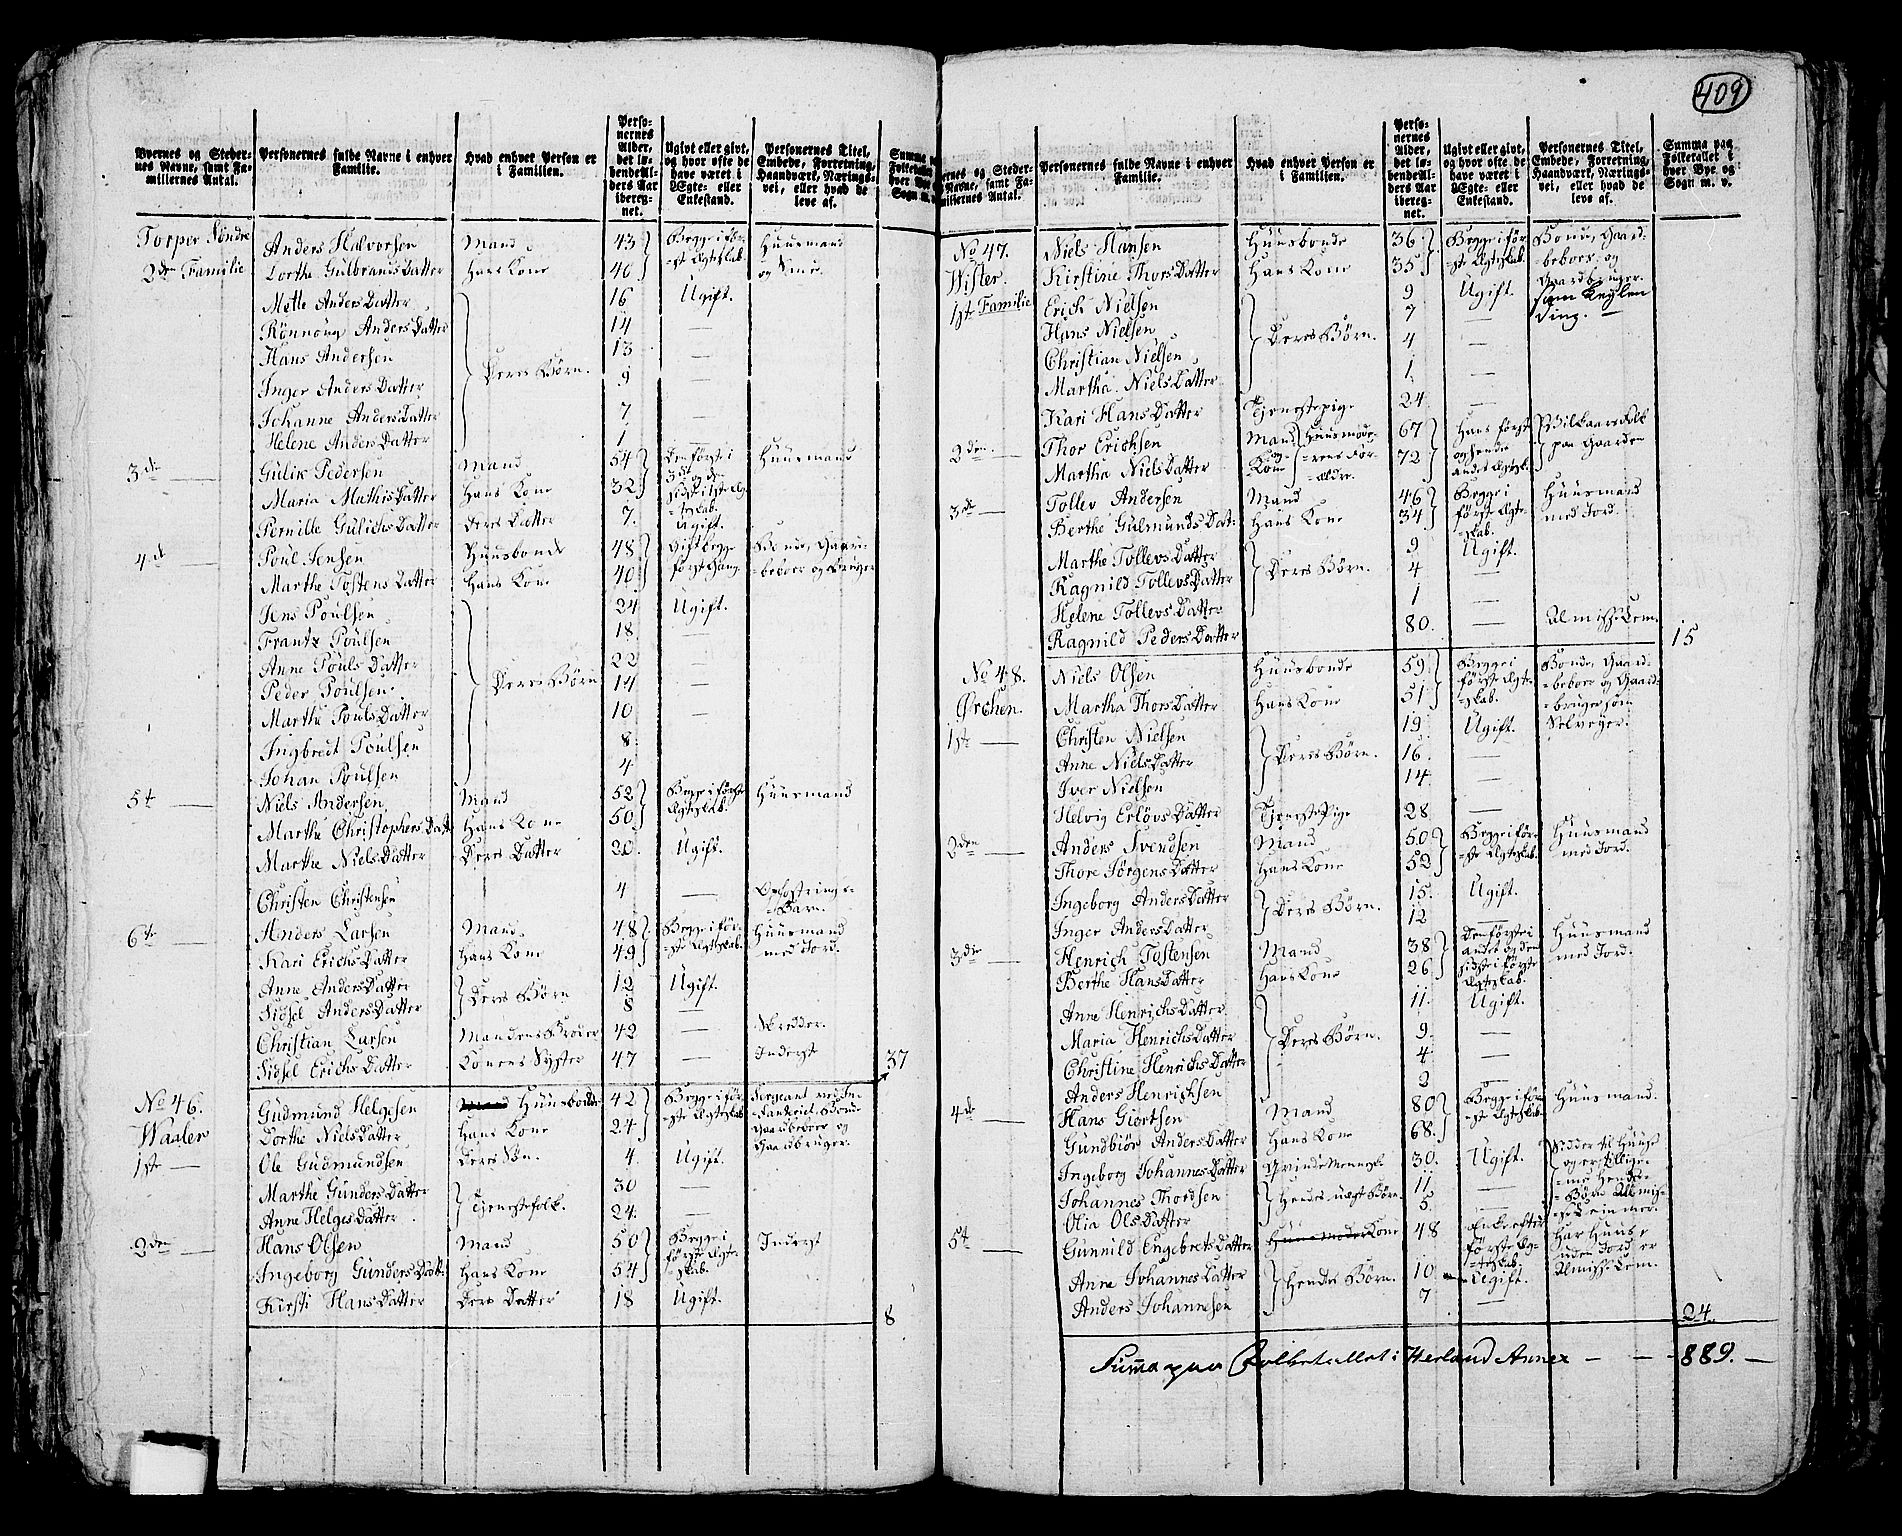 409
Byernes og Stedernes Navne, samt Familiernes Antal. | Personernes fulde Navne i enhver Familie. | Hvad enhver Person er i Familien. | Personernes Alder, det løbende Alders Aar iberegnet. | Ugivt eller givt, og hvor ofte de have været i Ægte- eller Enkestand. | Personernes Titel, Embede, Forretning, Haandværk, Næringsvei, eller hvad de leve af. | Summa paa Folketallet i hver Bye og Sogn m. v.
Torper Søndre | Anders Halvorsen | Mand | 43 | Begge i før- | Huusmand
2den Familie | Dorthe Gulbrands Datter | Hans Kone | 40 | -ste Ægteskab. | og Smed.
Mette Anders Datter | 16 | Ugift.
Rønnoug Anders Datter | 14 | —
Hans Andersen | Deres Børn. | 13
Inger Anders Datter | 9 | —
Johanne Anders Datter | 7
Helene Anders Datter | 1 | —
3die — | Gulik Pedersen | Mand | 54 | Den første i | Huusmand
Maria Mathis Datter | Hans Kone | 32 | 3die og den sidste i 1ste Æg-teskab.
Pernille Gulichs Datter | Deres Datter | 7. | Ugift.
4de — | Poul Jensen | Huusbonde | 48 | Gift begge | Bonde, Gaard-
Marthe Tostens Datter | Hans Kone | 40 | første Gang. | -beboer og Bruger
Jens Poulsen | 24 | Ugift.
Frantz Poulsen | 18 | —
Anne Pouls Datter | 22 | —
Peder Poulsen | Deres Børn | 14 | —
Marthe Pouls Datter | 10 | —
Ingbrett Poulsen | 8
Johan Poulsen | 4
5te — | Niels Andersen | Mand | 52 | Begge i første | Huusmand
Marthe Christophers Datt | Hans Kone | 50 | Ægteskab.
Marthe Niels Datter | Deres Datter | 20. | Ugift.
Christen Christensen | 4 | — | Opfostrings-
-Barn.
6te — | Anders Larsen | Mand | 48 | Begge i før- | Huusmand
Kari Erichs Datter | Hans Kone | 49 | -ste Ægteskab. | med Jord.
Anne Anders Datter | Deres Børn | 12 | Ugift.
Sidsel Anders Datter | 8 | —
Christian Larsen | Mandens Broder | 42 | — | Skredder.
Sidsel Erichs Datter | Konens Syster | 47 | — | Inderst | 37
No 46. | Gudmund Helgesen | Huusbonde | 42 | Begge i før- | Sergeant
Waaler | Dorthe Niels Datter | Hans Kone | 24 | -ste Ægteskab | Bonde Gaardbeboer og
1ste — | Ole Gudmundsen | Deres Søn. | 4. | Ugift. | Gaardbruger.
Marthe Gunders Datter | Tjenestefolk. | 30 | —
Anne Helges Datter | 24. | —
2den — | Hans Olsen | Mand | 50 | Begge i | Inderst
Ingeborg Gunders Datt: | Hans Kone | 54 | første Ægte-skab.
Kirsti Hans Datter | Deres Datter | 18 | Ugift. | 8
Byernes og Stedernes Navne, samt Familiernes Antal. | Personernes fulde Navne i enhver Familie. | Hvad enhver Person er i Familien. | Personernes Alder, det løbende Alders Aar iberegnet. | Ugivt eller givt, og hvor ofte de have været i Ægte- eller Enkestand. | Personernes Titel, Embede, Forretning, Haandværk, Næringsvei, eller hvad de leve af. | Summa paa Folketallet i hver Bye og Sogn m. v.
No 47. | Niels Hansen | Huusbonde | 36 | Begge i før- | Bonde, Gaard-
Wister. | Kirstine Thors Datter | Hans Kone | 35 | -ste Ægteskab. | beboer og
1ste Familie | Erich Nielsen | 9 | Ugift. | Gaardbruger
Hans Nielsen | Deres Børn. | 7 | — | som Leylen
ding.
Christian Nielsen | 4 | —
Martha Niels Datter | 1 | —
Kari Hans Datter | Tjenestepige | 24 | —
2den — | Thor Erichsen | Mand | Huusmode- | 67 | Hans første | Vilkaarsfolk
Martha Niels Datter | og Kone | -rens For-ældre. | 72 | og hendes andet Ægtesk. | paa Gaarden
3de — | Tollev Andersen | Mand | 46 | Begge i | Huusmand
Berthe Gulmunds Dat: | Hans Kone | 34 | første Ægte-skab. | med Jord.
Marthe Tollevs Datter | 9 | Ugift.
Ragnild Tollevs Datter | Deres Børn. | 4 | —
Helene Tollevs Datter | 1 | —
Ragnild Peders Datter | 80. | — | Almisse Lem. | 15
No 48. | Niels Olsen | Huusbonde | 59. | Begge i | Bonde, Gaard-
Ørchen. | Martha Thors Datter | Hans Kone | 51 | første Ægte-skab. | -beboer og Gaard-
1ste — | Christen Nielsen | 19 | Ugift. | -bruger som Selveyer.
Anne Niels Datter | Deres Børn. | 16 | —
Iver Nielsen | 14 | —
Helvig Erlövs Datter | Tjeneste Pige | 28 | —
2den — | Anders Svendsen | Mand | 50 | Begge i før- | Huusmand
Thore Jørgens Datter | Hans Kone | 52 | -ste Ægteskab. | med Jord.
Ingeborg Anders Datter | Deres Børn. | 15. | Ugift.
Inger Anders Datter | 12 | —
3die — | Henrich Tostensen | Mand | 38 | Den første i andet og den | Huusmand
Berthe Hans Datter | Hans Kone | 26 | sidste i første Ægteskab. | med Jord.
Anne Henrichs Datter | 11. | Ugift.
Maria Henrichs Datter | Deres Børn. | 9 | —
Christine Henrichs Datter | 4 | —
Anders Henrichsen | 2 | —
4de — | Hans Giortsen | Mand | 80 | Begge i før- | Huusmand.
Gundbiør Anders Datter | Hans Kone | 68. | -ste Ægteskab.
Ingeborg Johannes Datter | Qvinde Menneske | 30. | Ugift. | Sidder til Huuse
Johannes Thordsen | Hendes uægte Børn. | 11 | — | og er tillige-
Olia Ols Datter | 5. | — | -med Hendes Børn Almis-
5te — | Gunnild Engebrets Datter | Kone | 48 | Enke efter første Æg-teskab. | Har Huus uden Jord, er
Anne Johannes Datter | Hendes Børn. | 10 | Ugift. | Almisse Lem.
Anders Johannesen | 7 | — | 24
Summa paa Folketallet i Herland Annex — — — 889. —